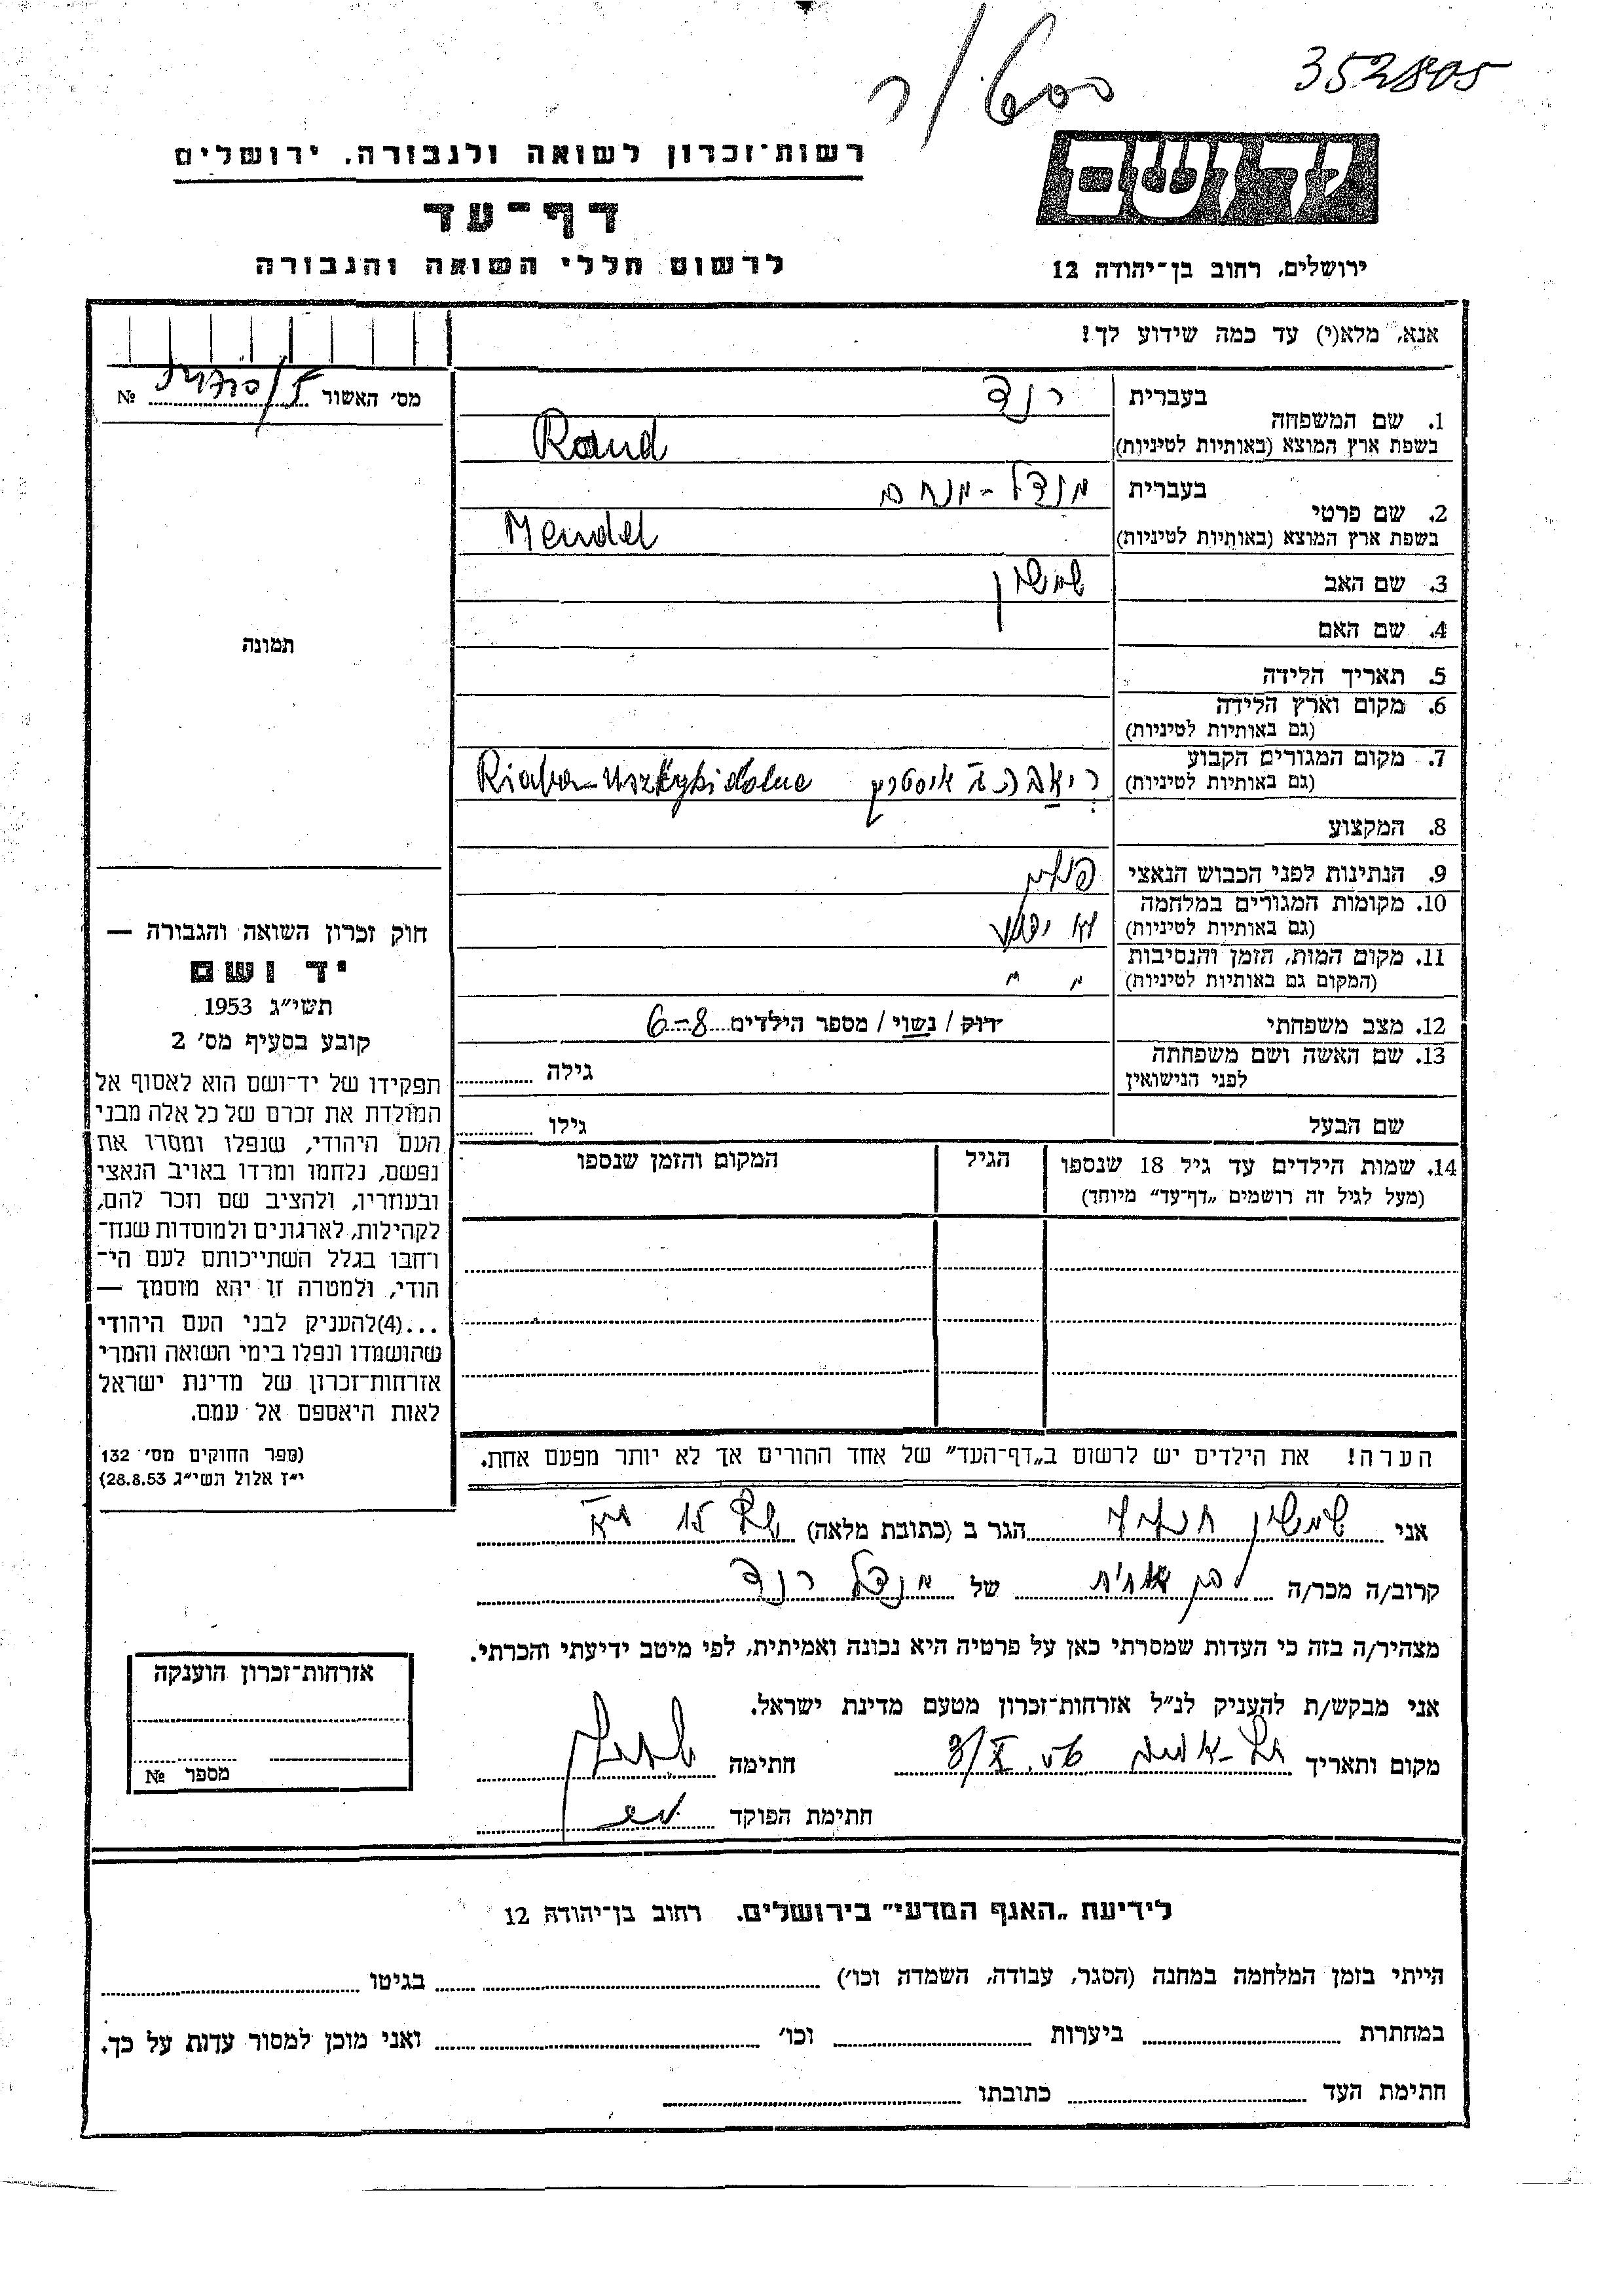 352805
רשות־זכרון לשואה ולגבורה, ירושלים
יד ושם
דף־עד
לרשום חללי השואה והגבורה
ירושלים, רחוב בן־יהודה 12
אנא, מלא(י) עד כמה שידוע לך!
מס׳ האשור № 
1. שם המשפחה
בעברית רנד
בשפת ארץ המוצא (באותיות לטיניות) Rand
2. שם פרטי
בעברית מנדל - מנחם
בשפת ארץ המוצא (באותיות לטיניות) Mendel
3. שם האב שמשון
4. שם האם
תמונה
5. תאריך הלידה
6. מקום וארץ הלידה
(גם באותיות לטיניות)
7. מקום המגורים הקבוע
(גם באותיות לטיניות)
8. המקצוע
9. הנתינות לפני הכבוש הנאצי
10. מקומות המגורים במלחמה
(גם באותיות לטיניות) לא ידוע
11. מקום המות, הזמן והנסיבות
(המקום גם באותיות לטיניות) " "
12. מצב משפחתי רוק / נשוי / מספר הילדים 6-8
13. שם האשה ושם משפחתה
לפני הנישואין
גילה
שם הבעל
גילו
14. שמות הילדים עד גיל 18 שנספו
(מעל לגיל זה רושמים „דף־עד״ מיוחד)
הגיל
המקום והזמן שנספו
חוק זכרון השואה והגבורה —
יד ושם
תשי״ג 1953
קובע בסעיף מס׳ 2
תפקידו של יד־ושם הוא לאסוף אל
המולדת את זכרם של כל אלה מבני
העם היהודי, שנפלו ומסרו את
נפשם, נלחמו ומרדו באויב הנאצי
ובעוזריו, ולהציב שם וזכר להם,
לקהילות, לארגונים ולמוסדות שנח־
רבו בגלל השתייכותם לעם הי־
הודי, ולמטרה זו יהא מוסמך —
...(4)להעניק לבני העם היהודי
שהושמדו ונפלו בימי השואה והמרי
אזרחות־זכרון של מדינת ישראל
לאות היאספם אל עמם.
(ספר החוקים מס׳ 132
י״ז אלול תשי״ג 28.8.53)
הערה! את הילדים יש לרשום ב„דף־העד״ של אחד ההורים אך לא יותר מפעם אחת.
אני שמשון הגר ב (כתובת מלאה)
קרוב/ה מכר/ה בן אחות של מנדל רנד
מצהיר/ה בזה כי העדות שמסרתי כאן על פרטיה היא נכונה ואמיתית, לפי מיטב ידיעתי והכרתי.
אני מבקש/ת להעניק לנ״ל אזרחות־זכרון מטעם מדינת ישראל.
מקום ותאריך חתימה
חתימת הפוקד
אזרחות־זכרון הוענקה
מספר №
לידיעת „האגף המדעי״ בירושלים, רחוב בן־יהודה 12
הייתי בזמן המלחמה במחנה (הסגר, עבודה, השמדה וכו׳) בגיטו
במחתרת ביערות וכו׳ ואני מוכן למסור עדות על כך.
חתימת העד כתובתו